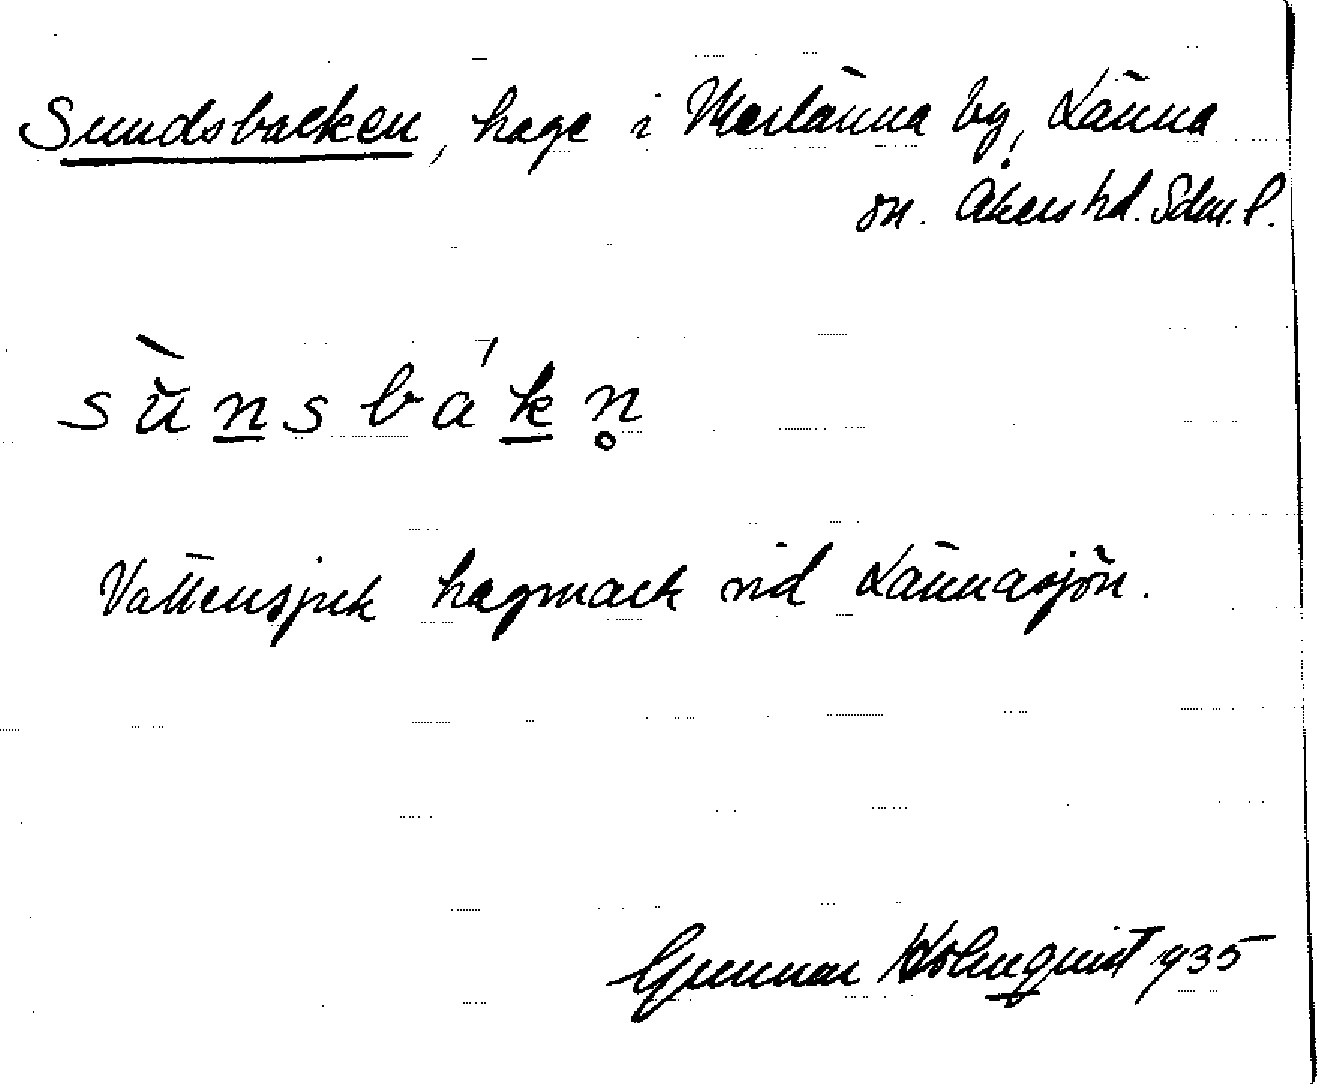 Sundsbacken, hage i Merlänna by, Länna
sn. Åkers hd. Sdm. l.
sùnsbákn̥
Vattensjuk hagmark vid Lännasjön.
Gunnar Holmquist 1935